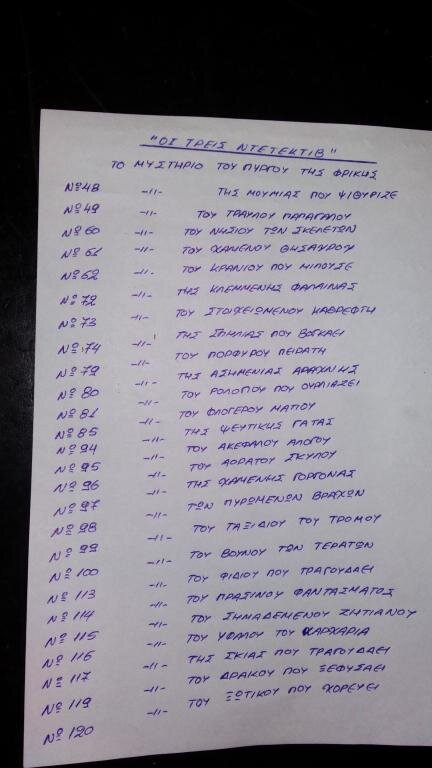 "ΟΙ ΤΡΕΙΣ ΝΤΕΤΕΚΤΙΒ"
ΤΟ ΜΥΣΤΗΡΙΟ ΤΟΥ ΠΥΡΓΟΥ ΤΗΣ ΦΡΙΚΗΣ
Nº48 -//- ΤΗΣ ΜΟΥΜΙΑΣ ΠΟΥ ΨΙΘΥΡΙΖΕ
Nº49 -//- ΤΟΥ ΤΡΑΥΛΟΥ ΠΑΠΑΓΑΛΟΥ
Nº60 -//- ΤΟΥ ΝΗΣΙΟΥ ΤΩΝ ΣΚΕΛΕΤΩΝ
Nº61 -//- ΤΟΥ ΧΑΜΕΝΟΥ ΘΗΣΑΥΡΟΥ
Nº62 -//- ΤΟΥ ΚΡΑΝΙΟΥ ΠΟΥ ΜΙΛΟΥΣΕ
Nº72 -//- ΤΗΣ ΚΛΕΜΜΕΝΗΣ ΦΑΛΑΙΝΑΣ
Nº73 -//- ΤΟΥ ΣΤΟΙΧΕΙΩΜΕΝΟΥ ΚΑΘΡΕΦΤΗ
-//- ΤΗΣ ΣΠΗΛΙΑΣ ΠΟΥ ΒΟΓΚΑΕΙ
Nº74 -//- ΤΟΥ ΠΟΡΦΥΡΟΥ ΠΕΙΡΑΤΗ
Nº79 -//- ΤΗΣ ΑΣΗΜΕΝΙΑΣ ΑΡΑΧΝΗΣ
Nº80 -//- ΤΟΥ ΡΟΛΟΓΙΟΥ ΠΟΥ ΟΥΡΛΙΑΖΕΙ
Nº81 -//- ΤΟΥ ΦΛΟΓΕΡΟΥ ΜΑΤΙΟΥ
Nº85 -//- ΤΗΣ ΨΕΥΤΙΚΗΣ ΓΑΤΑΣ
Nº94 -//- ΤΟΥ ΑΚΕΦΑΛΟΥ ΑΛΟΓΟΥ
Nº95 -//- ΤΟΥ ΑΟΡΑΤΟΥ ΣΚΥΛΟΥ
Nº96 -//- ΤΗΣ ΧΑΜΕΝΗΣ ΓΟΡΓΟΝΑΣ
Nº97 -//- ΤΩΝ ΠΥΡΩΜΕΝΩΝ ΒΡΑΧΩΝ
Nº98 -//- ΤΟΥ ΤΑΞΙΔΙΟΥ ΤΟΥ ΤΡΟΜΟΥ
Nº99 -//- ΤΟΥ ΒΟΥΝΟΥ ΤΩΝ ΤΕΡΑΤΩΝ
Nº100 -//- ΤΟΥ ΦΙΔΙΟΥ ΠΟΥ ΤΡΑΓΟΥΔΑΕΙ
Nº113 -//- ΤΟΥ ΠΡΑΣΙΝΟΥ ΦΑΝΤΑΣΜΑΤΟΣ
Nº114 -//- ΤΟΥ ΣΗΜΑΔΕΜΕΝΟΥ ΖΗΤΙΑΝΟΥ
Nº115 -//- ΤΟΥ ΥΦΑΛΟΥ ΤΟΥ ΚΑΡΧΑΡΙΑ
Nº116 -//- ΤΗΣ ΣΚΙΑΣ ΠΟΥ ΤΡΑΓΟΥΔΑΕΙ
Nº117 -//- ΤΟΥ ΔΡΑΚΟΥ ΠΟΥ ΞΕΦΥΣΑΕΙ
Nº119 -//- ΤΟΥ ΞΩΤΙΚΟΥ ΠΟΥ ΧΟΡΕΥΕΙ
Nº120